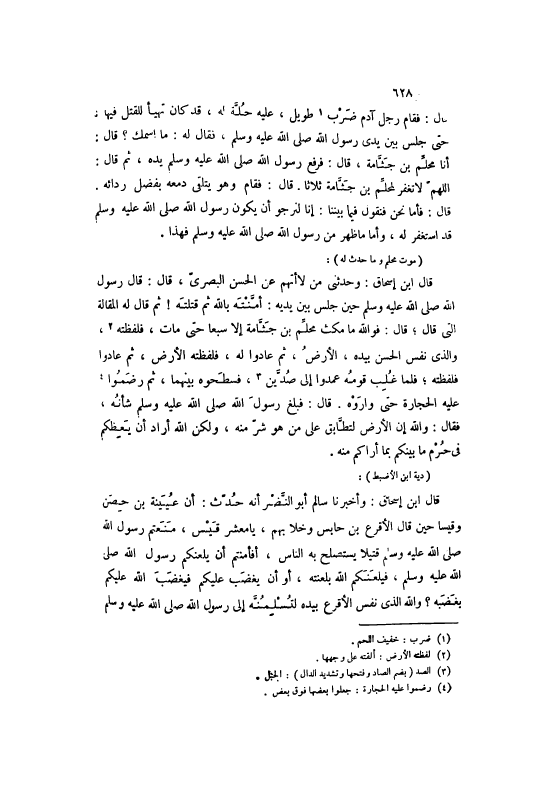 ٦٢٨
قال : فقام رجل آدم ضَرْب ١ طويل ، عليه حُلَّة له ، قد كان تهيأ للقتل فيها ؛
حتى جلس بين يدى رسول الله صلى الله عليه وسلم ، فقال له : ما اسمك ؟ قال :
أنا محلِّم بن جَثَّامة ، قال : فرفع رسول الله صلى الله عليه وسلم يده ، ثم قال :
اللهمّ لاتغفر لمحلِّم بن جَثَّامة ثلاثا . قال : فقام وهو يتلقَّى دمعه بفضل ردائه .
قال : فأما نحن فنقول فيما بيننا : إنا لنرجو أن يكون رسول الله صلى الله عليه وسلم
قد استغفر له ، وأما ماظهر من رسول الله صلى الله عليه وسلم فهذا .
( موت محلم وما حدث له ) :
قال ابن إسحاق : وحدثنى من لاأتهم عن الحسن البصرىّ ، قال : قال رسول
الله صلى الله عليه وسلم حين جلس بين يديه : أمَّنْتَه بالله ثم قتلتَه ! ثم قال له المقالة
التى قال ؛ قال : فوالله ما مكث محلِّم بن جَثَّامة إلا سبعا حتى مات ، فلفظته ٢ ،
والذى نفس الحسن بيده ، الأرضُ ، ثم عادوا له ، فلفظته الأرض ، ثم عادوا
فلفظته ؛ فلما غُلِب قومُه عمدوا إلى صُدَّين ٣ ، فسطَحوه بينهما ، ثم رضَمُوا ٤
عليه الحجارة حتى وارَوْه . قال : فبلغ رسولَ الله صلى الله عليه وسلم شأنُه ،
فقال : والله إن الأرض لتطَّابق على من هو شرّ منه ، ولكن الله أراد أن يَعِظكم
فى حُرْم ما بينكم بما أراكم منه .
( دية ابن الأضبط ) :
قال ابن إسحاق : وأخبرنا سالم أبو النَّضْر أنه حُدّث : أن عُيَيْنة بن حِصْن
وقيسا حين قال الأقرع بن حابس وخلا بهم ، يامعشر قَيْس ، مَنَعتم رسول الله
صلى الله عليه وسلم قتيلا يستصلح به الناس ، أفأمنتم أن يلعنكم رسول الله صلى
الله عليه وسلم ، فيلعنَكم الله بلعنته ، أو أن يغضب عليكم فيغضَبَ الله عليكم
بغضبه ؟ والله الذى نفس الأقرع بيده لتُسْلِمُنَّه إلى رسول الله صلى الله عليه وسلم
(١) ضرب : خفيف اللحم .
(٢) لفظته الأرض : ألقته على وجهها .
(٣) الصد ( بضم الصاد وفتحها وتشديد الدال ) : الجبل .
(٤) رضموا عليه الحجارة : جعلوا بعضها فوق بعض .